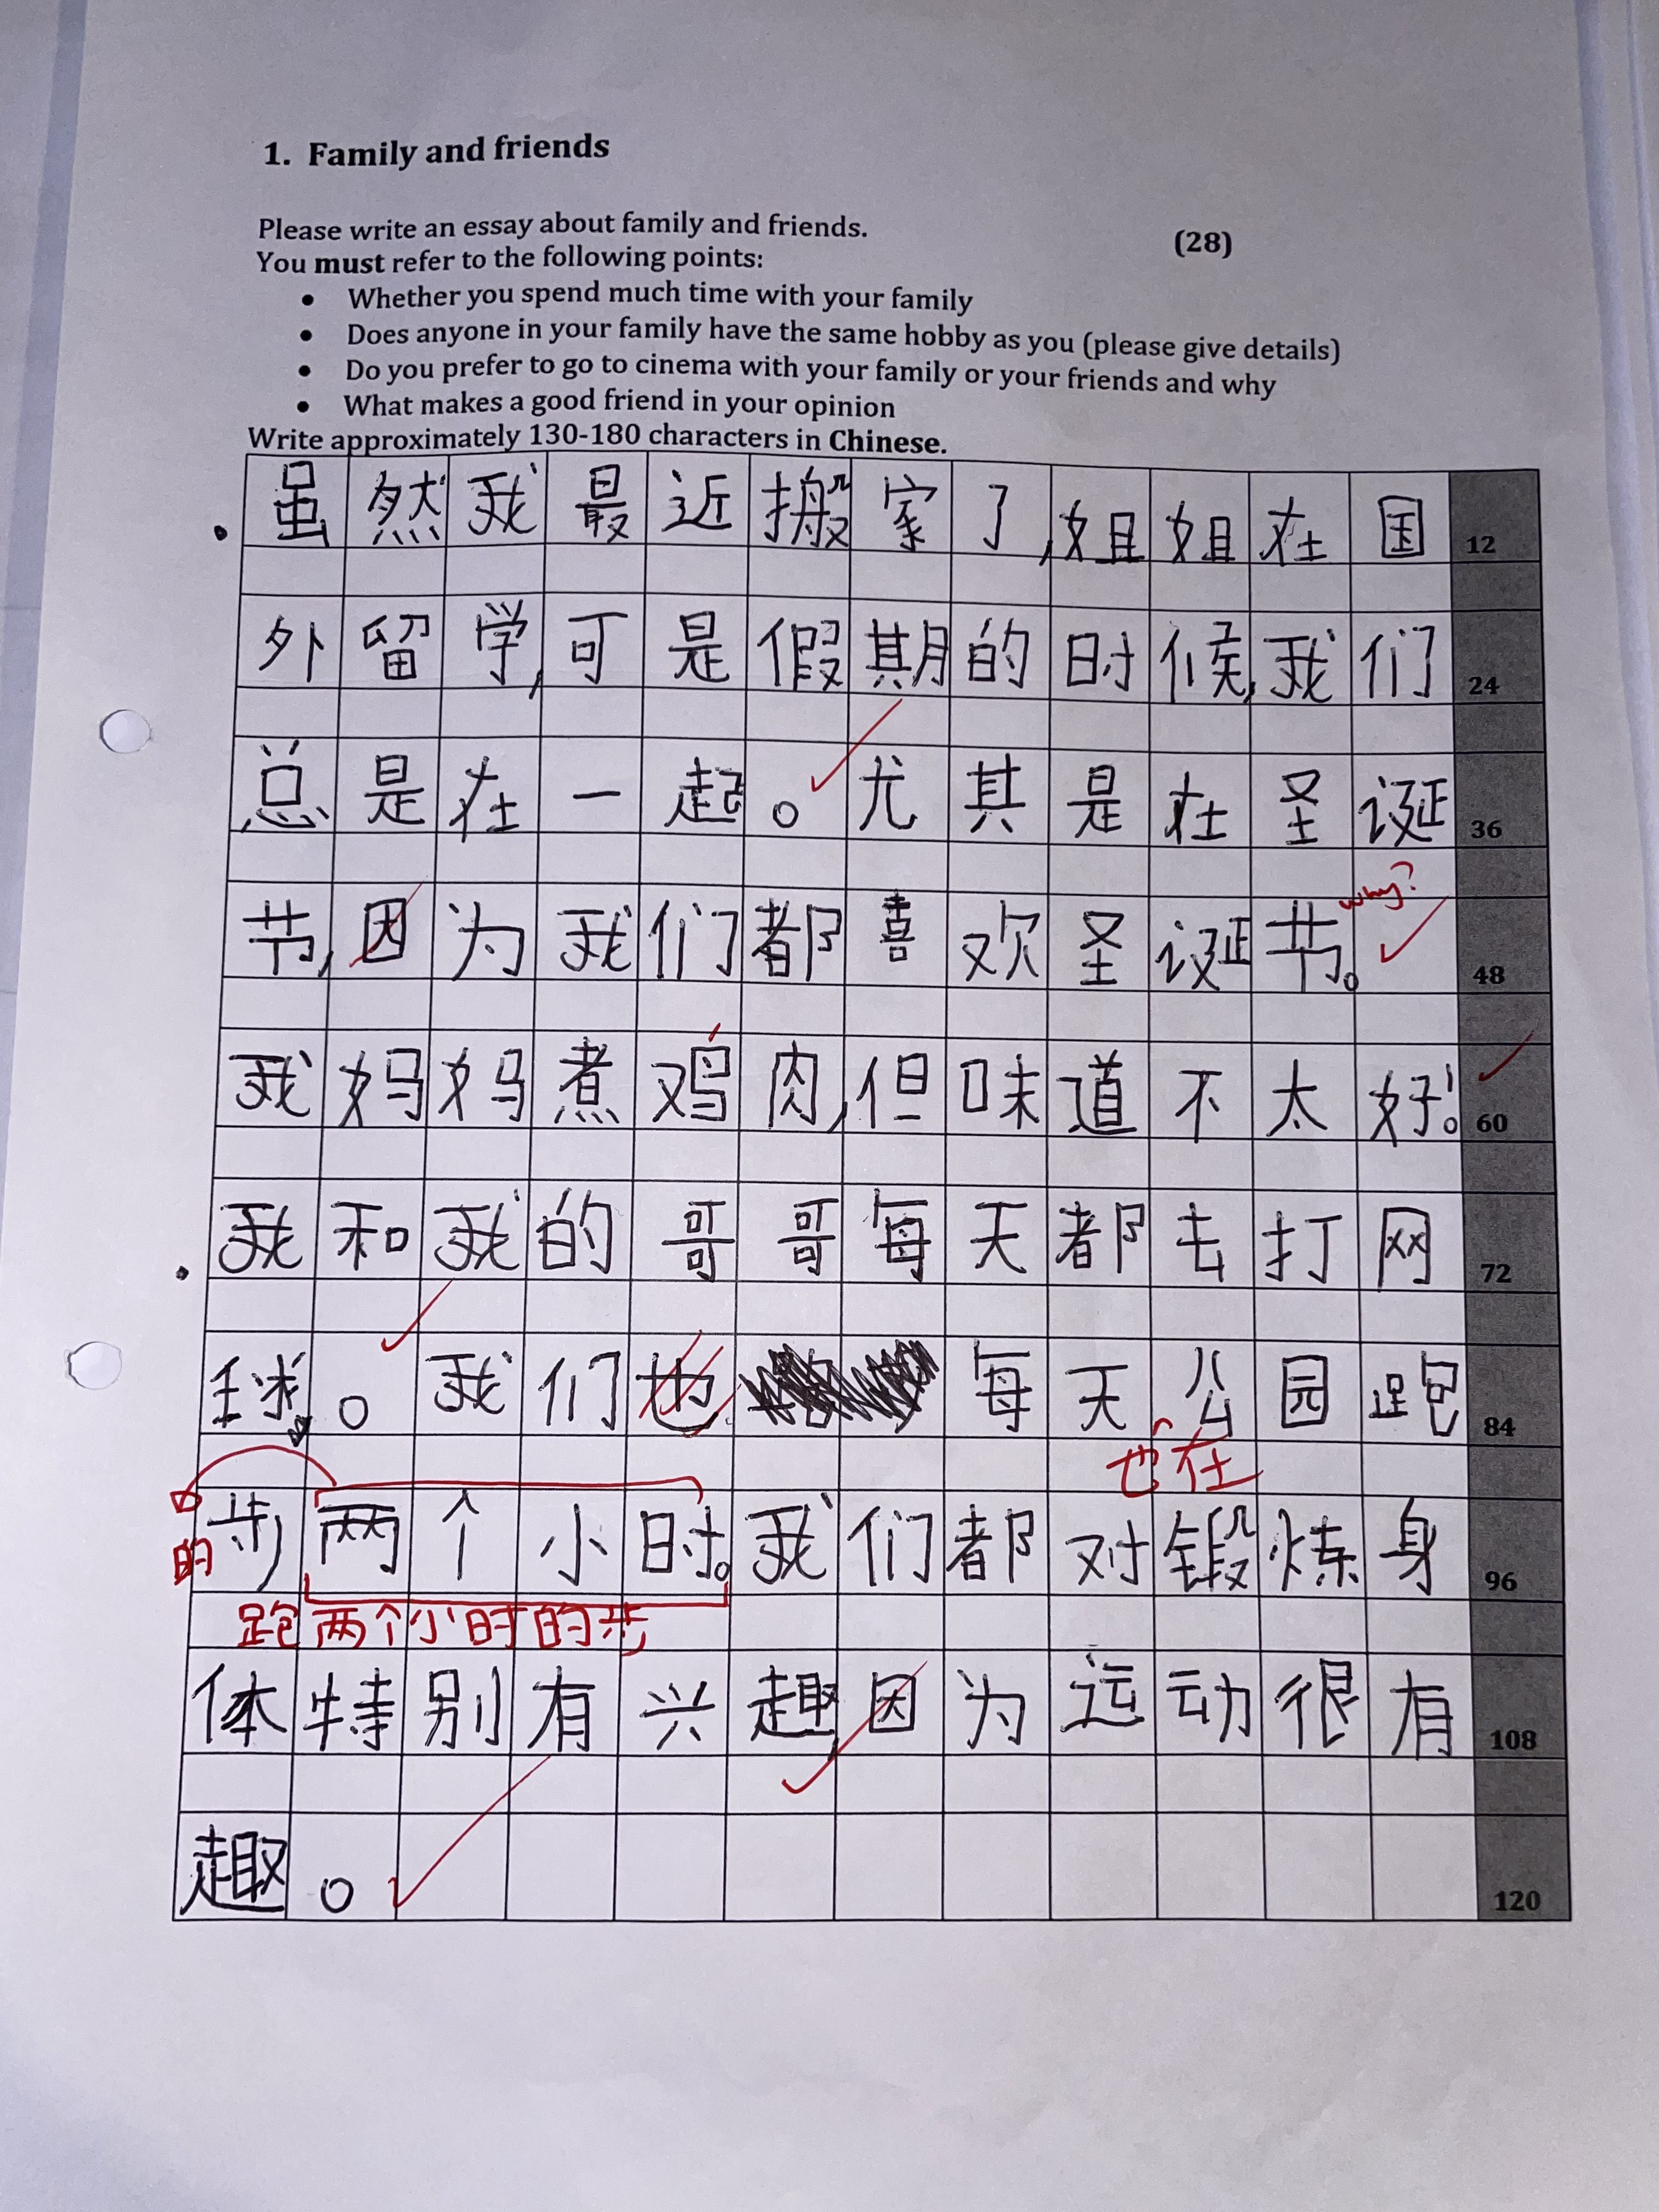 1. Family and friends
Please write an essay about family and friends. (28)
You must refer to the following points:
• Whether you spend much time with your family
• Does anyone in your family have the same hobby as you (please give details)
• Do you prefer to go to cinema with your family or your friends and why
• What makes a good friend in your opinion
Write approximately 130-180 characters in Chinese.
虽然我最近搬家了,姐姐在国 12
外留学,可是假期的时候,我们 24
总是在一起。尤其是在圣诞 36
why?
节,因为我们都喜欢圣诞节。 48
我妈妈煮鸡肉,但味道不太好。 60
我和我的哥哥每天都去打网 72
球。我们也每天公园跑 84
也在
步两个小时。我们都对锻炼身 96
的
跑两个小时的步
体特别有兴趣,因为运动很有 108
趣。 120